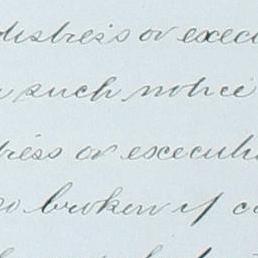 distress or execu
such notice
tress or executi
so broken if co